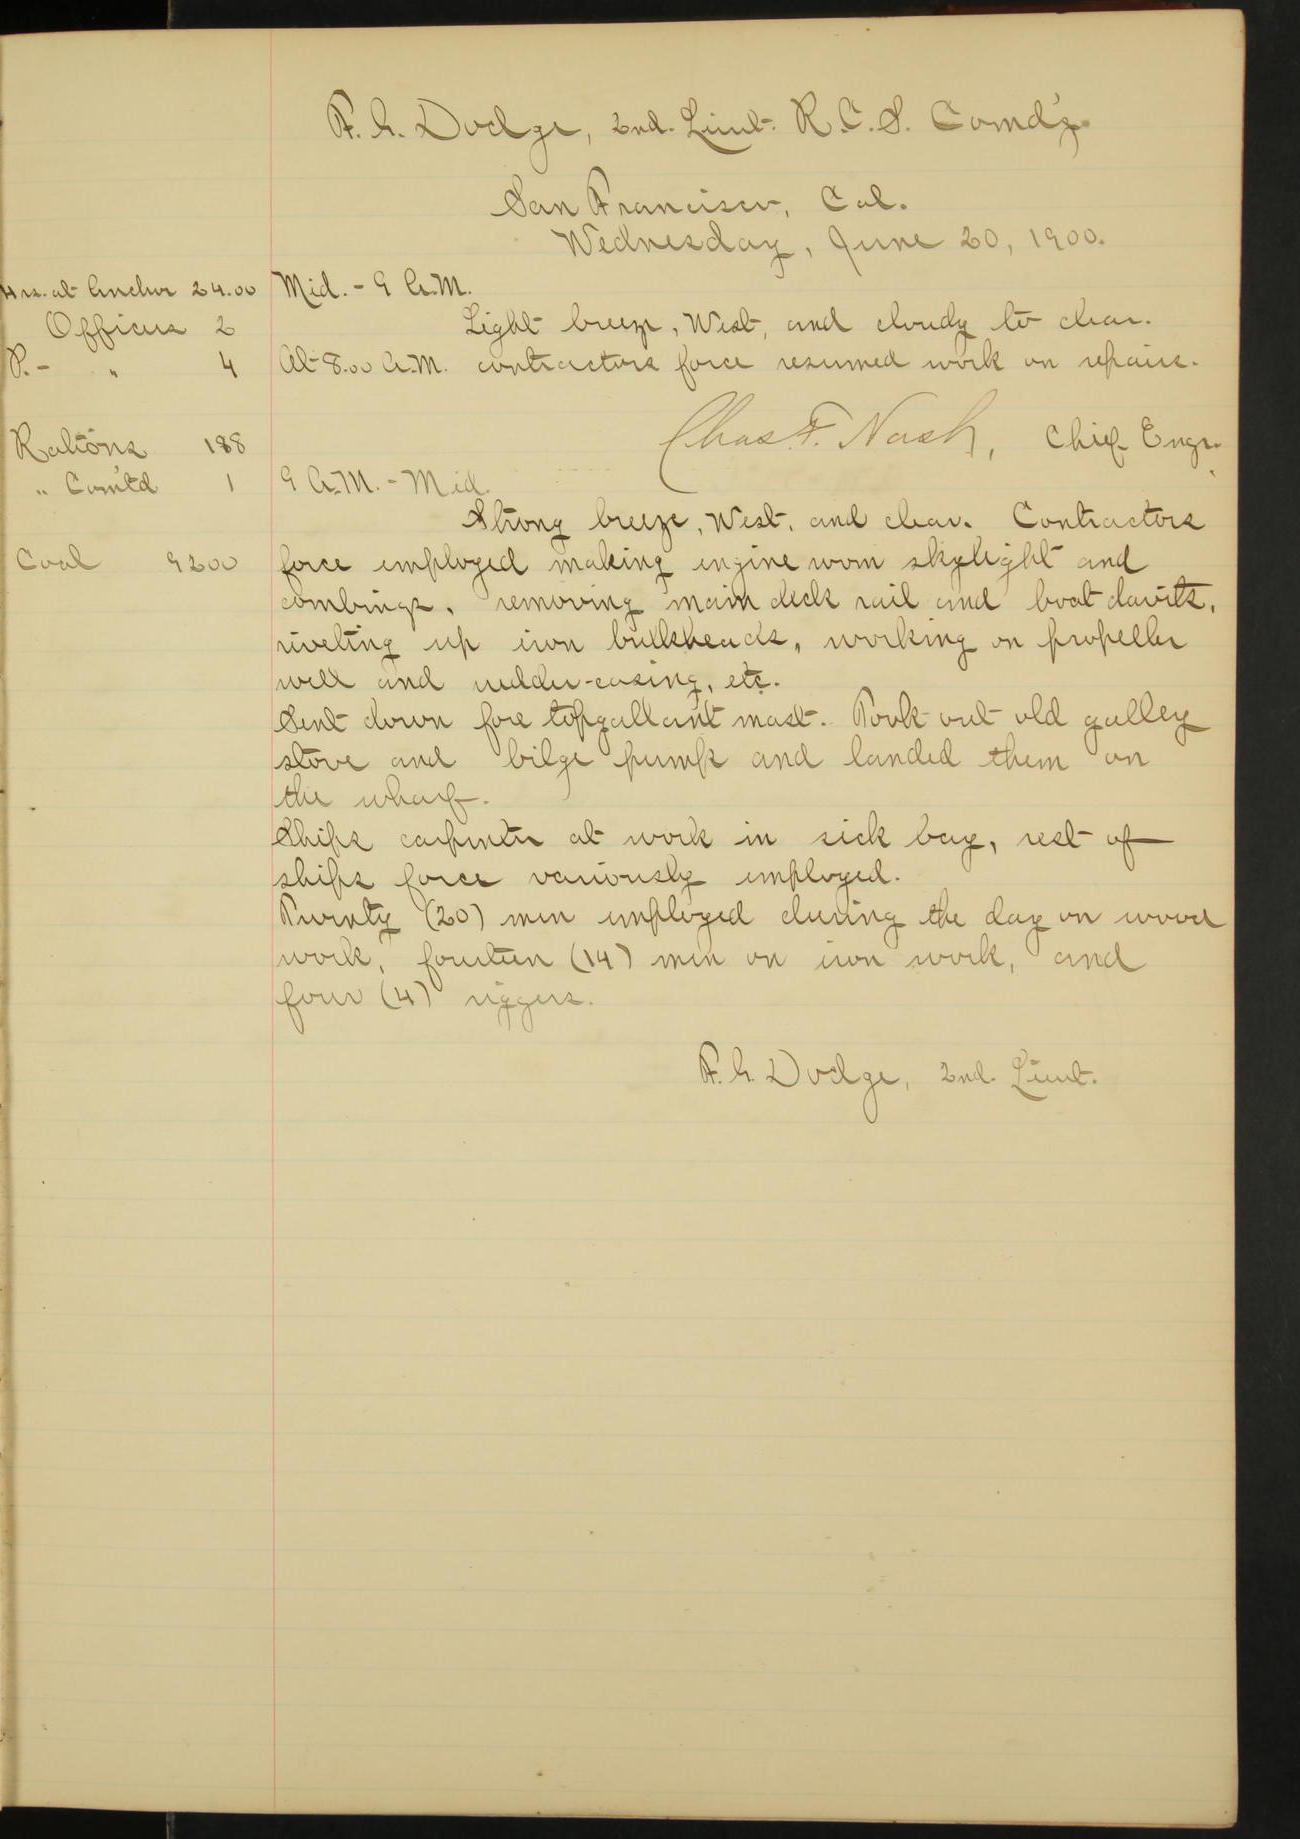 F. G. Dodge, 2nd. Lieut. R.C.S. Comd'g.
San Francisco, Cal.
Wednesday, June 20, 1900.
Hrs. at Anchor 24.00 Mid. - 9 A.M.
Officers 2 Light breeze, West, and cloudy to clear.
P. - " 4 At 8.00 A.M. contractors force resumed work on repairs.
Chas. F. Nash, Chief Engr.
Rations 188
" Com'td 1 9 A.M. - Mid.
Strong breeze, West, and clear. Contractors
Coal 9200 force employed making engine room skylight and
combings, removing main deck rail and boat davits,
riveting up iron bulkheads, working on propeller
well and rudder-casing, etc.
Sent down fore topgallant mast. Took out old galley
stove and bilge pump and landed them on
the wharf.
Ships carpenter at work in sick bay, rest of
ships force variously employed.
Twenty (20) men employed during the day on wood
work, fourteen (14) men on iron work, and
four (4) riggers.
F. G. Dodge, 2nd. Lieut.